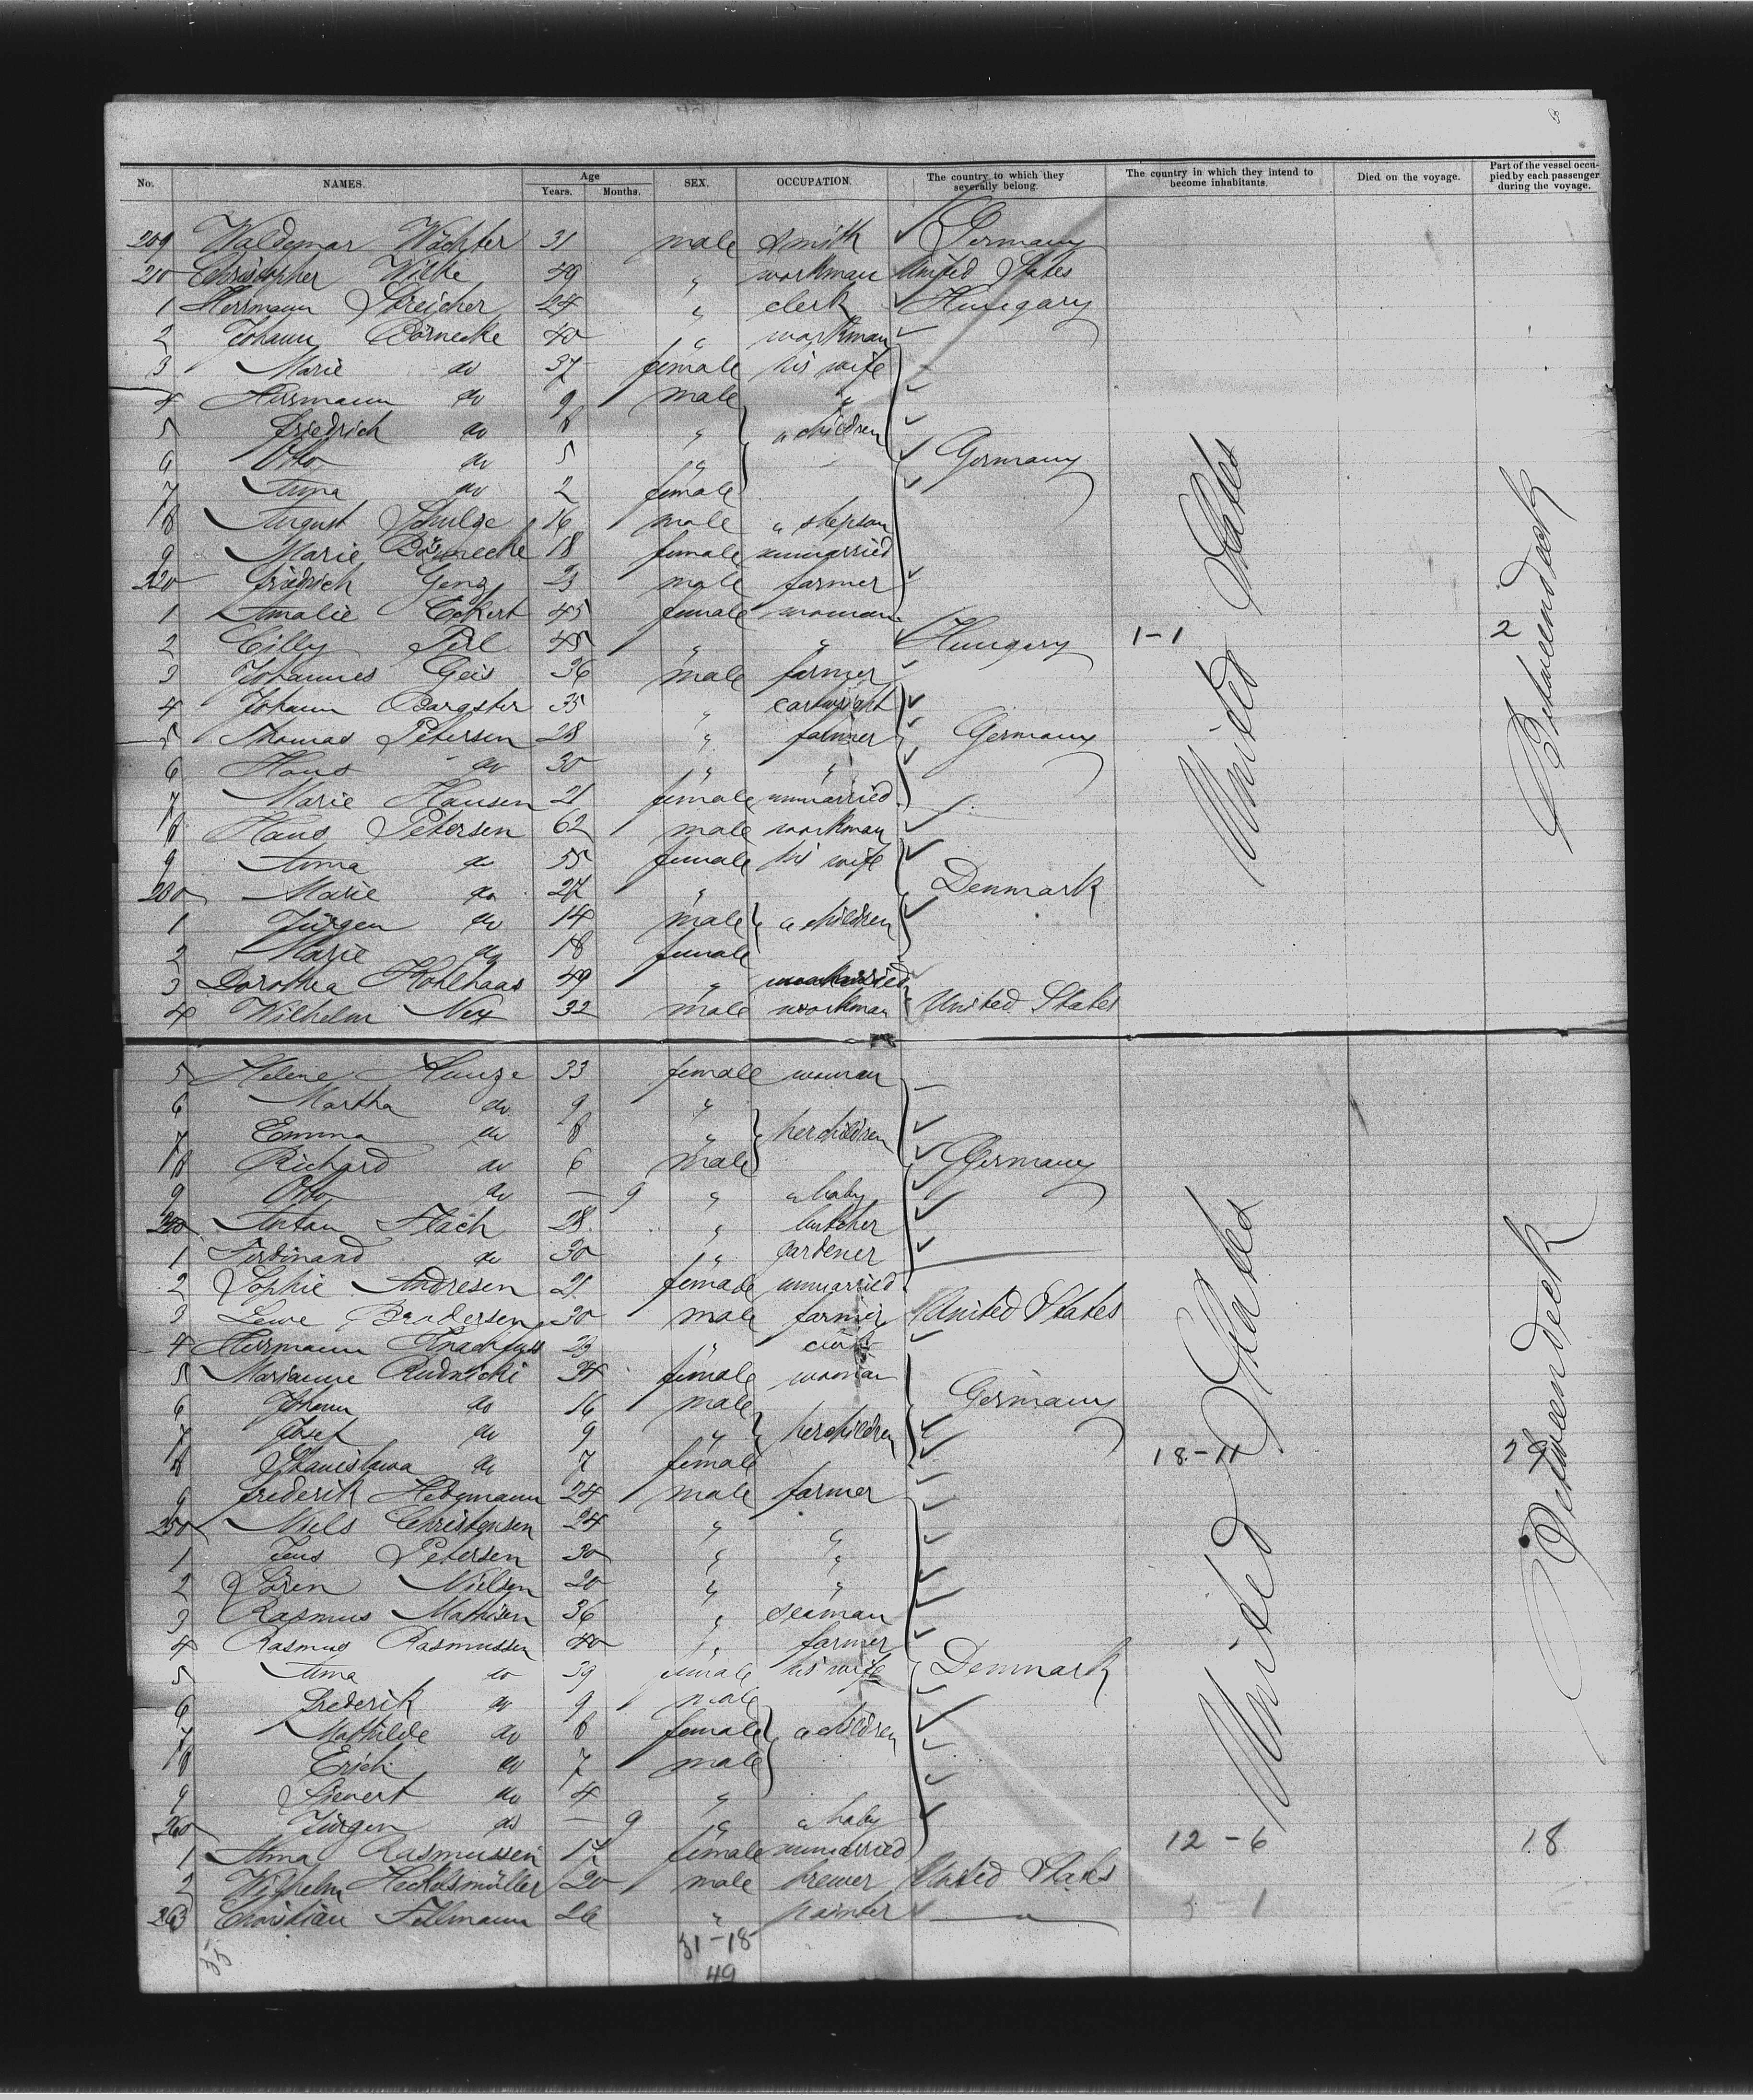 8
No. NAMES. Age Years. Months. SEX. OCCUPATION. The country to which they severally belong. The country in which they intend to become inhabitants. Died on the voyage. Part of the vessel occupied by each passenger during the voyage.
209 Waldemar Wächter 31 male smith Germany
210 Christopher Wilke 49 " workman United States
1 Herrmann Streicher 24 " clerk Hungary
2 Johann Börnecke 40 " workman
3 Marie do 37 female his wife
4 Hermann do 9 male "
5 Friedrich do 8 " " children
6 Otto do 5 " Germany
7 Anna do 2 female
8 August Schulze 16 male " stepson
9 Marie Börnecke 18 female unmarried
220 Friedrich Genz 23 male farmer
1 Amalie Eckert 45 female woman
2 Cilly Perl 45 " " Hungary 1-1 2
3 Johannes Geis 36 male farmer
4 Johann Bargster 35 " cartwright
5 Thomas Petersen 28 " farmer Germany
6 Hans do 30 " "
7 Marie Hansen 21 female unmarried
8 Hans Petersen 62 male workman
9 Anna do 55 female his wife
230 Marie do 27 " Denmark
1 Jürgen do 14 male " children
2 Marie do 18 female
3 Dorothea Kohlhaas 49 "
4 Wilhelm Nex 32 male workman United States
United States
Betweendeck
5 Helene Kunze 33 female woman
6 Martha do 9 "
7 Emma do 8 " her children
8 Richard do 6 male Germany
9 Otto do — 9 " " baby
240 Anton Flach 28 " butcher
1 Ferdinand do 30 " gardener
2 Sophie Andresen 21 female unmarried
3 Lewe Brodersen 30 male farmer United States
4 Hermann 29 "
5 Marianne Rudnicki 34 female woman
6 Johann do 16 male Germany
7 Josef do 9 " her children
8 Stanislawa do 7 female 18-11
9 Frederik Hedemann 24 male farmer
250 Niels Christensen 24 " "
1 Jens Petersen 30 " "
2 Sören Nielsen 20 " "
3 Rasmus Mathisen 36 " seaman
4 Rasmus Rasmussen 40 " farmer
5 Anna do 39 female his wife Denmark
6 Frederik do 9 male
7 Mathilde do 8 female " children
8 Erich do 7 male
9 Sievert do 4 "
260 Jürgen do — 9 " " baby
1 Anna Rasmussen 17 female unmarried 12-6 18
2 Wilhelm Heckelsmüller 20 male brewer United States
263 Christian Fellmann 26 " painter — " — 3-1
United States
Betweendeck
55 31-18
49